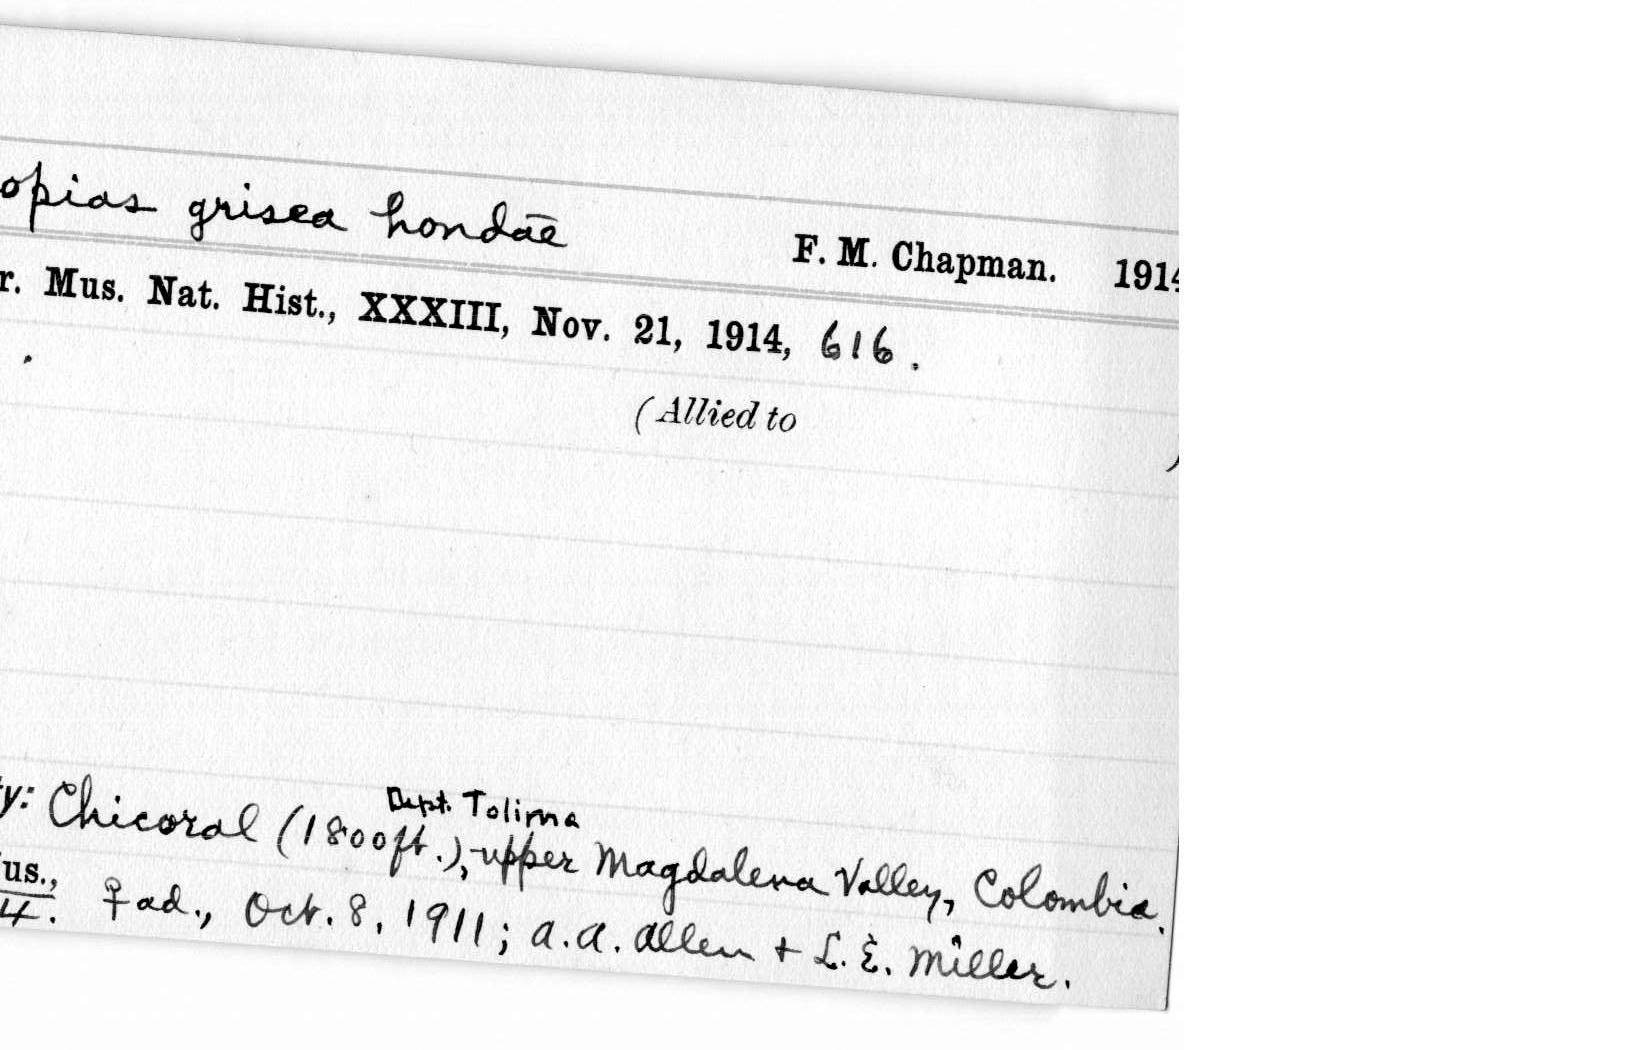 opias grisea hondae F. M. Chapman. 1914
r. Mus. Nat. Hist., XXXIII, Nov. 21, 1914, 616.
(Allied to )
Dept. Tolima
ty: Chicoral (1800ft.), upper Magdalena Valley, Colombia.
us.,
4. ♀ ad., Oct. 8, 1911; A. A. Allen + L. E. Miller.